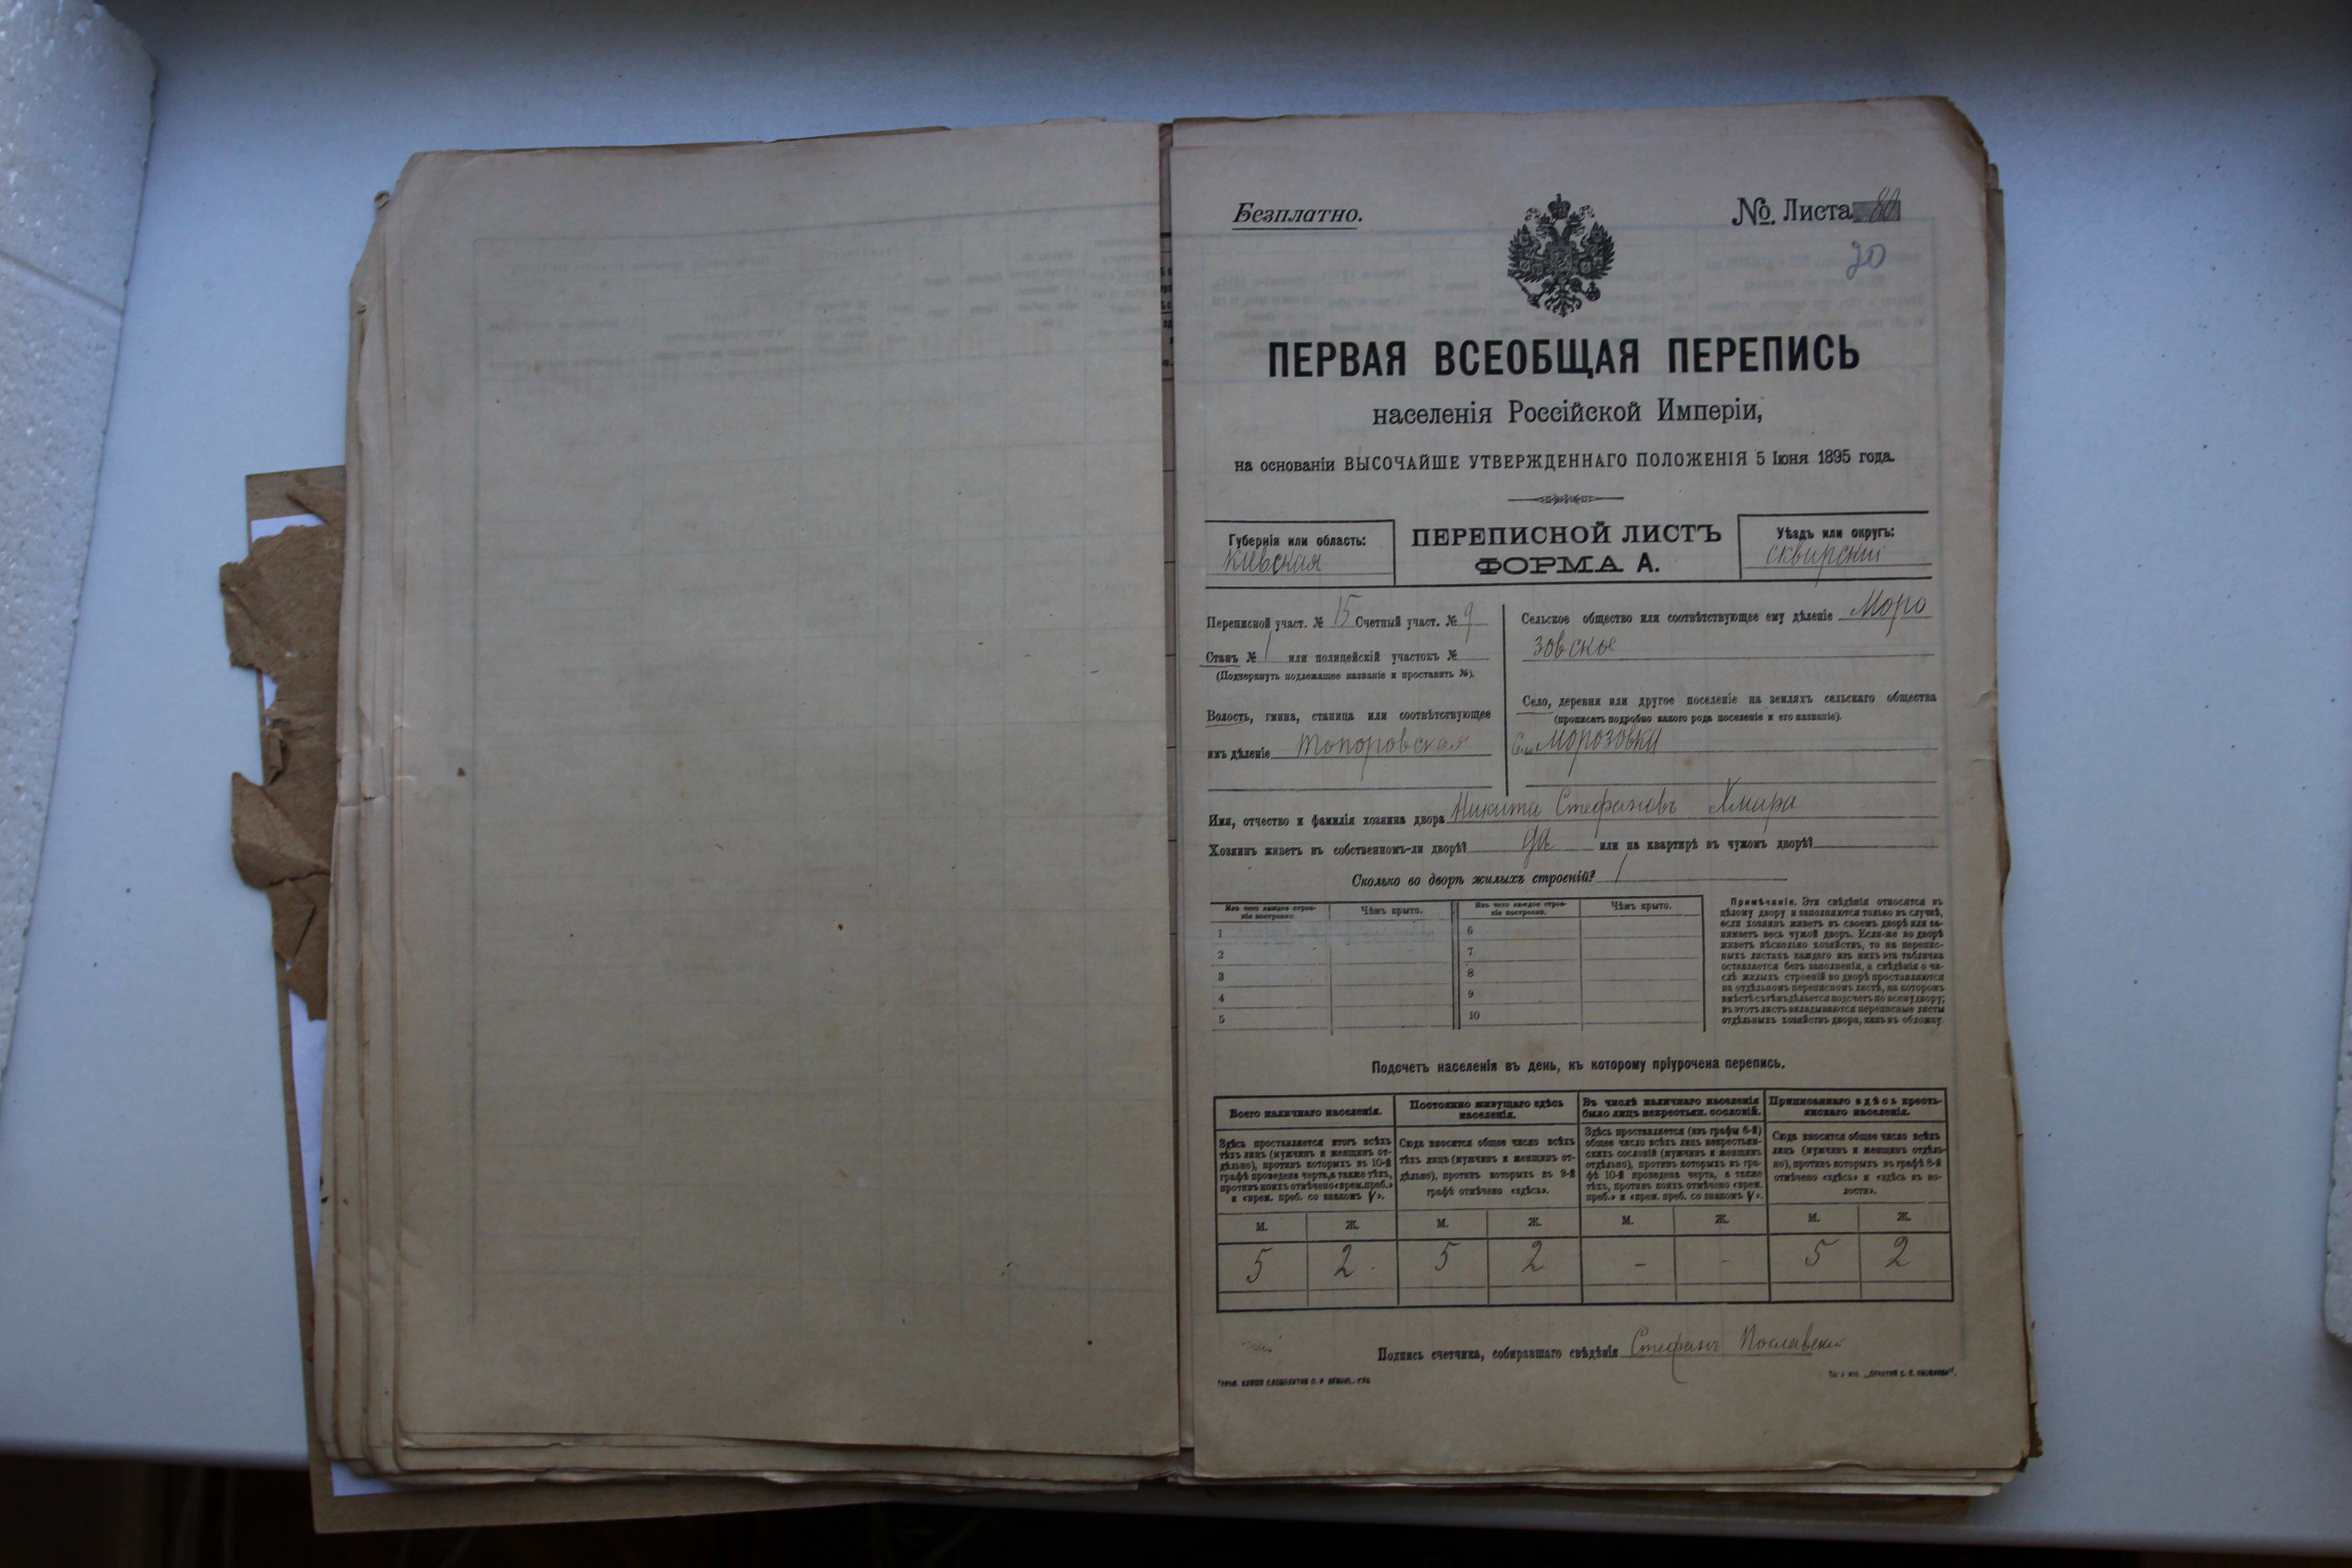 Безплатно.
№ Листа 80
20
ПЕРВАЯ ВСЕОБЩАЯ ПЕРЕПИСЬ
населенія Россійской Имперіи,
на основаніи ВЫСОЧАЙШЕ УТВЕРЖДЕННАГО ПОЛОЖЕНІЯ 5 Іюня 1895 года.
Губернія или область:
Кіевская
ПЕРЕПИСНОЙ ЛИСТЪ
ФОРМА А.
Уѣздъ или округъ:
Сквирскій
Переписной участ. № 15 Счетный участ. № 9
Станъ № 1 или полицейскій участокъ №
(Подчеркнуть подлежащее названіе и проставить №).
Волость, гмина, станица или соотвѣтствующее
имъ дѣленіе Топоровская
Сельское общество или соотвѣтствующее ему дѣленіе Моро
зовское
Село, деревня или другое поселеніе на земляхъ сельскаго общества
(прописать подробно какого рода поселеніе и его названіе).
Морозовка
Имя, отчество и фамилія хозяина двора Никита Стефановъ Хмара
Хозяинъ живетъ въ собственномъ-ли дворѣ? да или на квартирѣ въ чужомъ дворѣ?
Сколько во дворѣ жилыхъ строеній? 1
Изъ чего каждое строе-
ніе построено.
Чѣмъ крыто.
Изъ чего каждое строе-
ніе построено.
Чѣмъ крыто.
1
6
2
7
3
8
4
9
5
10
Примѣчаніе. Эти свѣдѣнія относятся къ
цѣлому двору и заполняются только въ случаѣ,
если хозяинъ живетъ въ своемъ дворѣ или за-
нимаетъ весь чужой дворъ. Если-же во дворѣ
живетъ нѣсколько хозяйствъ, то на перепис-
ныхъ листахъ каждаго изъ нихъ эта табличка
оставляется безъ заполненія, а свѣдѣнія о чи-
слѣ жилыхъ строеній во дворѣ проставляются
на отдѣльномъ переписномъ листѣ, на которомъ
вмѣстѣ съ тѣмъ дѣлается подсчетъ по всему двору;
въ этотъ листъ вкладываются переписные листы
отдѣльныхъ хозяйствъ двора, какъ въ обложку.
Подсчетъ населенія въ день, къ которому пріурочена перепись.
Всего наличнаго населенія.
Здѣсь проставляется итогъ всѣхъ
тѣхъ лицъ (мужчинъ и женщинъ от-
дѣльно), противъ которыхъ въ 10-й
графѣ проведена черта, а также тѣхъ,
противъ коихъ отмѣчено «врем. преб.»
и «врем. преб. со знакомъ V».
Постоянно живущаго здѣсь
населенія.
Сюда вносится общее число всѣхъ
тѣхъ лицъ (мужчинъ и женщинъ от-
дѣльно), противъ которыхъ въ 9-й
графѣ отмѣчено «здѣсь».
Въ числѣ наличнаго населенія
было лицъ некрестьян. сословій.
Здѣсь проставляется (изъ графы 6-й)
общее число всѣхъ лицъ некрестьян-
скихъ сословій (мужчинъ и женщинъ
отдѣльно), противъ которыхъ въ гра-
фѣ 10-й проведена черта, а также
тѣхъ, противъ коихъ отмѣчено «врем.
преб.» и «врем. преб. со знакомъ V».
Приписаннаго здѣсь кресть-
янскаго населенія.
Сюда вносится общее число всѣхъ
лицъ (мужчинъ и женщинъ отдѣль-
но), противъ которыхъ въ графѣ 8-й
отмѣчено «здѣсь» и «здѣсь въ во-
лости».
М. Ж. М. Ж. М. Ж. М. Ж.
5 2 5 2 - - 5 2
Подпись счетчика, собиравшаго свѣдѣнія Стефанъ